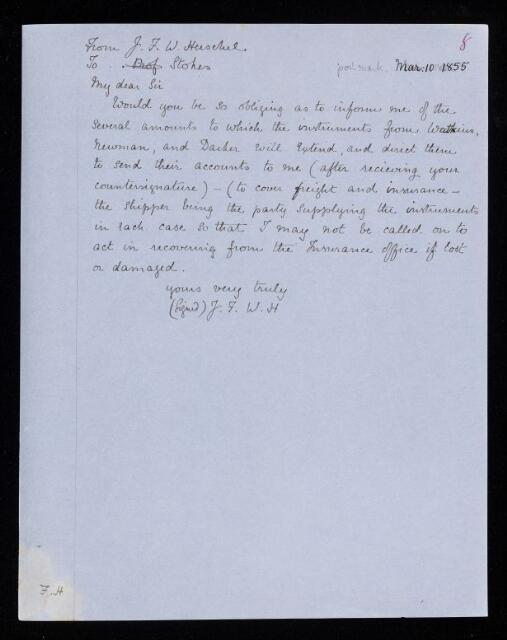 8
From J. F. W. Herschel.
To .. Prof Stokes
post mark. Mar: 10 1855
My dear Sir
Would you be so obliging as to inform me of the
several amounts to which the instruments from Watkins,
Newman, and Darker will extend, and direct them
to send their accounts to me (after recieving your
countersignature) – (to cover freight and insurance –
the shipper being the party supplying the instruments
in each case so that I may not be called on to
act in recovering from the Insurance office if lost
or damaged.
yours very truly
(signed) J. F. W. H
F.H